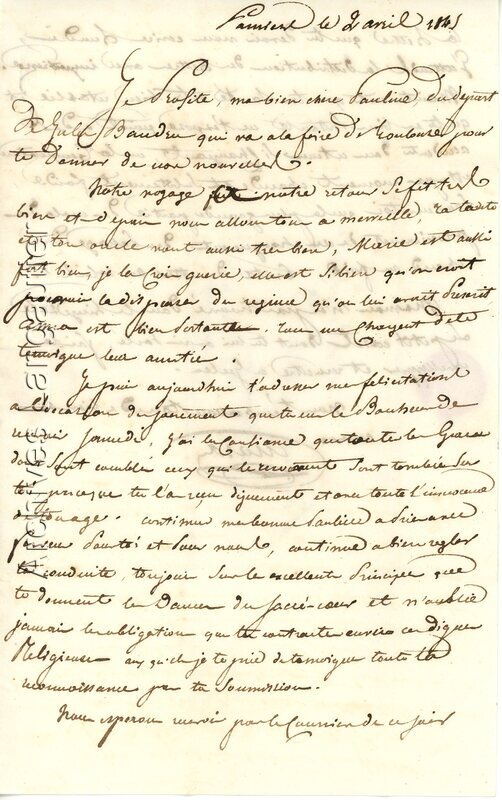 le 2 avril 1845
Je Profite, ma bien chere Pauline, du depart
De Jules Baudru qui va a la foire de toulouse pour
te donner de nos nouvelles.
Notre voyage notre retour Se fit très
bien et depuis nous allons tous a merveille, ta tante
et ton oncle vont aussi tres bien, Marie est aussi
fort bien, je la Crois guerie, elle est Si bien qu'on croit
pouvoir la dispenser du regime qu'on lui avoit Prescrit
est bien Portante. tous me Chargent de te
temoigner leur amitié.
Je puis aujourdhui t'adresser mes felicitations
a l'occasion du que tu eus le Bonheur de
recevoir jeudi, J'ai la Confiance que toutes les Graces
dont Sont comblés ceux qui le reçoivent Sont tombées Sur
toi puisque tu l'as reçu dignement et avec toute l'innocence
de ton age. continue ma bonne Pauline a Prier avec
ferveur Pour toi et Pour nous, continue a bien regler
ta conduite, toujours Sur les excellents Principes que
te donnent les Dames du Sacré-coeur et n'oublie
jamais les obligations que tu contractes envers ces dignes
Religieuses aux quelles je te prie de temoigner toute ta
reconnoissance par ta Soumission.
Nous esperons recevoir par le Courrier de ce Soir
Archives artgaumer